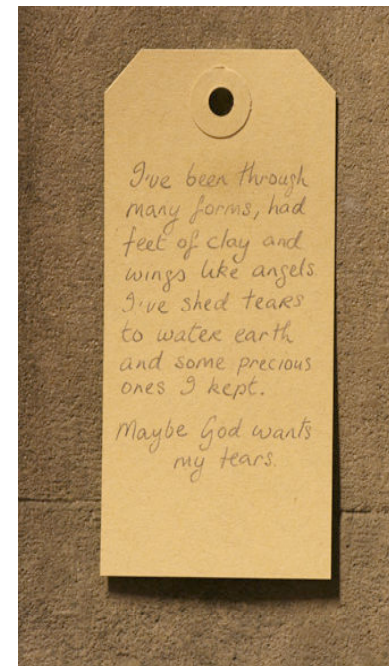 I've been through
many forms, had
feet of clay and
wings like angels.
I've shed tears
to water earth
and some precious
ones I kept.
Maybe God wants
my tears.